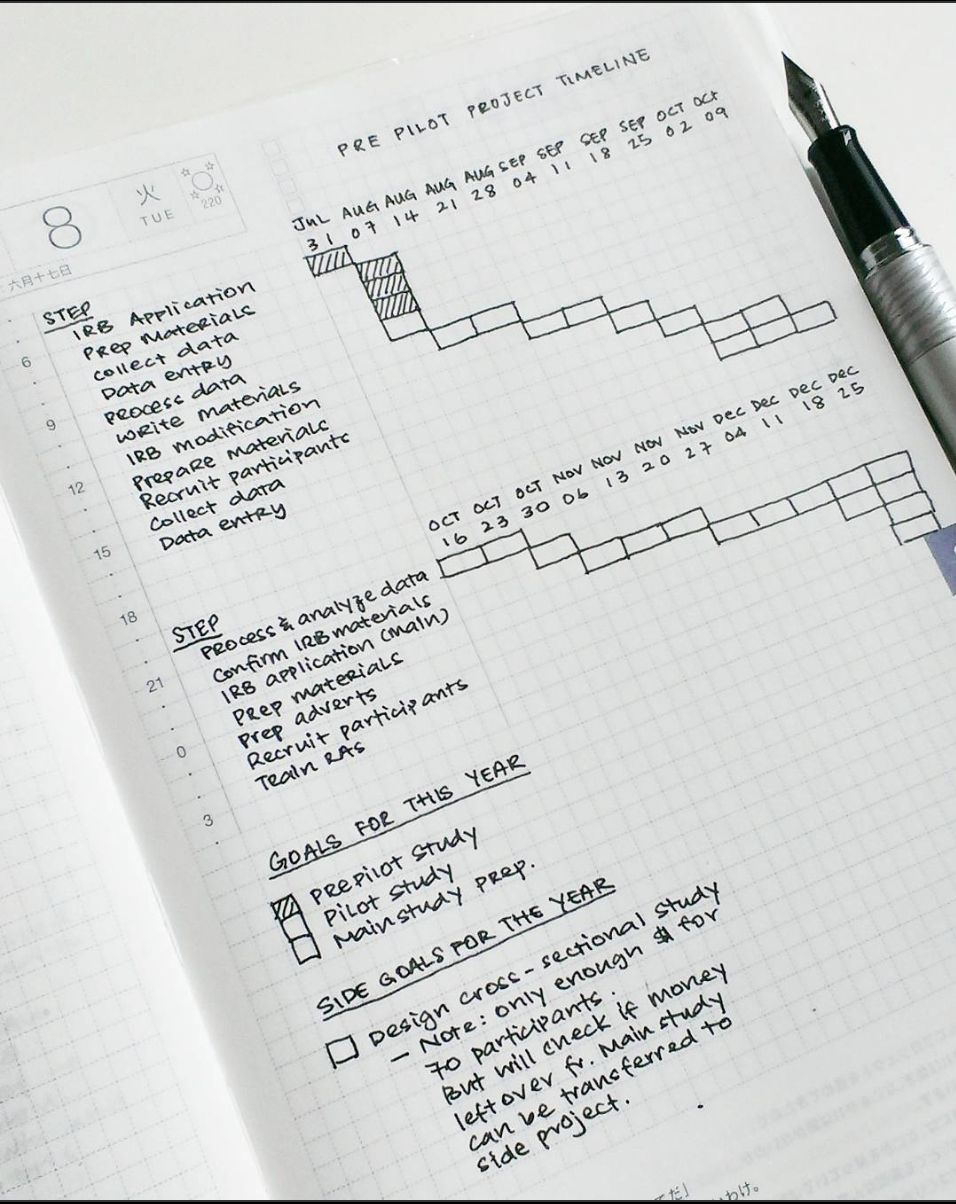 PRE PILOT PROJECT TIMELINE
JUL AUG AUG AUG AUG SEP SEP SEP SEP OCT OCT
31 07 14 21 28 04 11 18 25 02 09
8
火
TUE
220
六月十七日
STEP
IRB Application
Prep Materials
collect data
Data entry
process data
write materials
IRB modification
prepare materials
Recruit participants
collect data
Data entry
6
9
12
15
18
21
0
3
OCT OCT OCT NOV NOV NOV NOV DEC DEC DEC DEC
16 23 30 06 13 20 27 04 11 18 25
STEP
Process & analyze data
confirm IRB materials
IRB application (main)
prep materials
prep adverts
Recruit participants
Train RAs
GOALS FOR THIS YEAR
Prepilot study
Pilot study
Main study prep.
SIDE GOALS FOR THE YEAR
Design cross-sectional study
- Note: only enough $ for
70 participants.
But will check if money
left over fr. Main study
can be transferred to
side project.